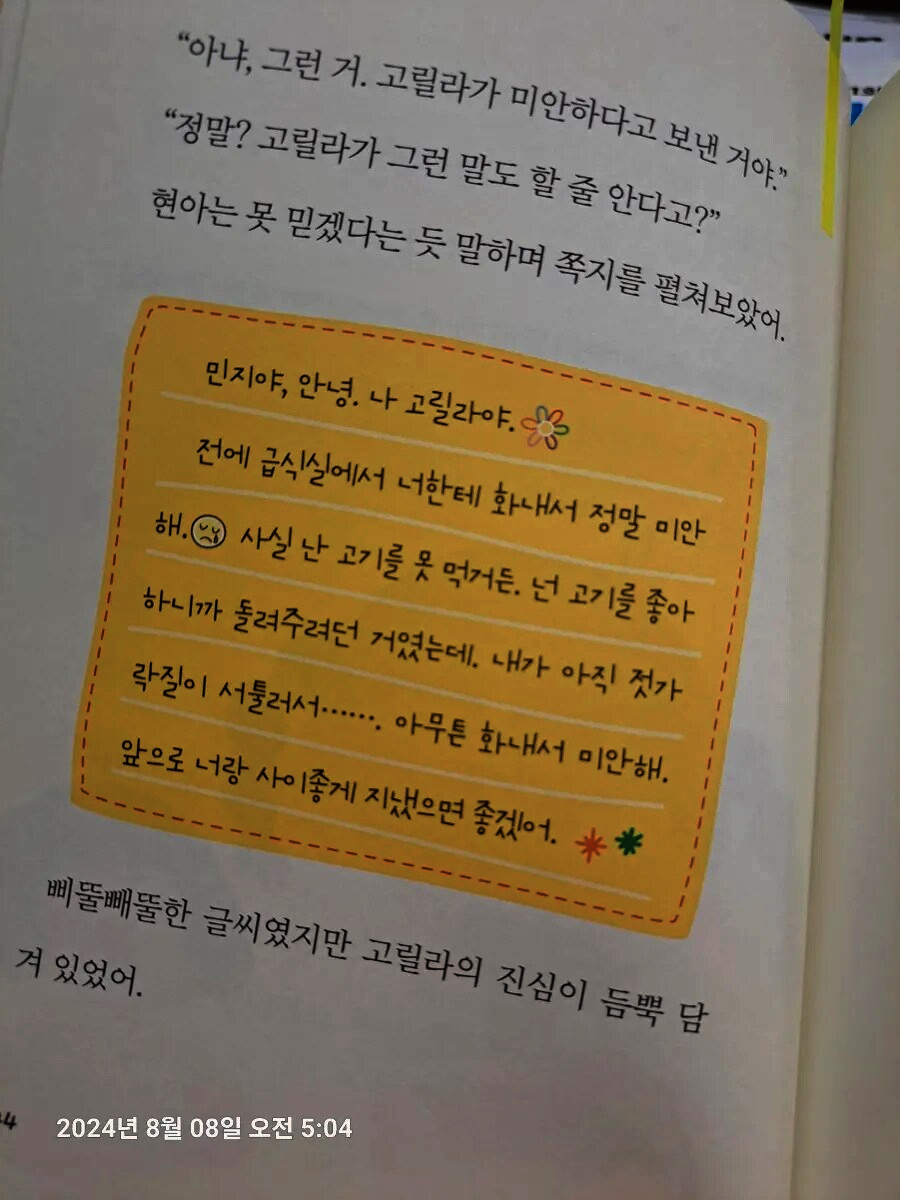 “아냐, 그런 거. 고릴라가 미안하다고 보낸 거야.”
“정말? 고릴라가 그런 말도 할 줄 안다고?”
현아는 못 믿겠다는 듯 말하며 쪽지를 펼쳐보았어.
민지야, 안녕. 나 고릴라야.
전에 급식실에서 너한테 화내서 정말 미안
해. 사실 난 고기를 못 먹거든. 넌 고기를 좋아
하니까 돌려주려던 거였는데. 내가 아직 젓가
락질이 서툴러서……. 아무튼 화내서 미안해.
앞으로 너랑 사이좋게 지냈으면 좋겠어.
삐뚤빼뚤한 글씨였지만 고릴라의 진심이 듬뿍 담
겨 있었어.
2024년 8월 08일 오전 5:04